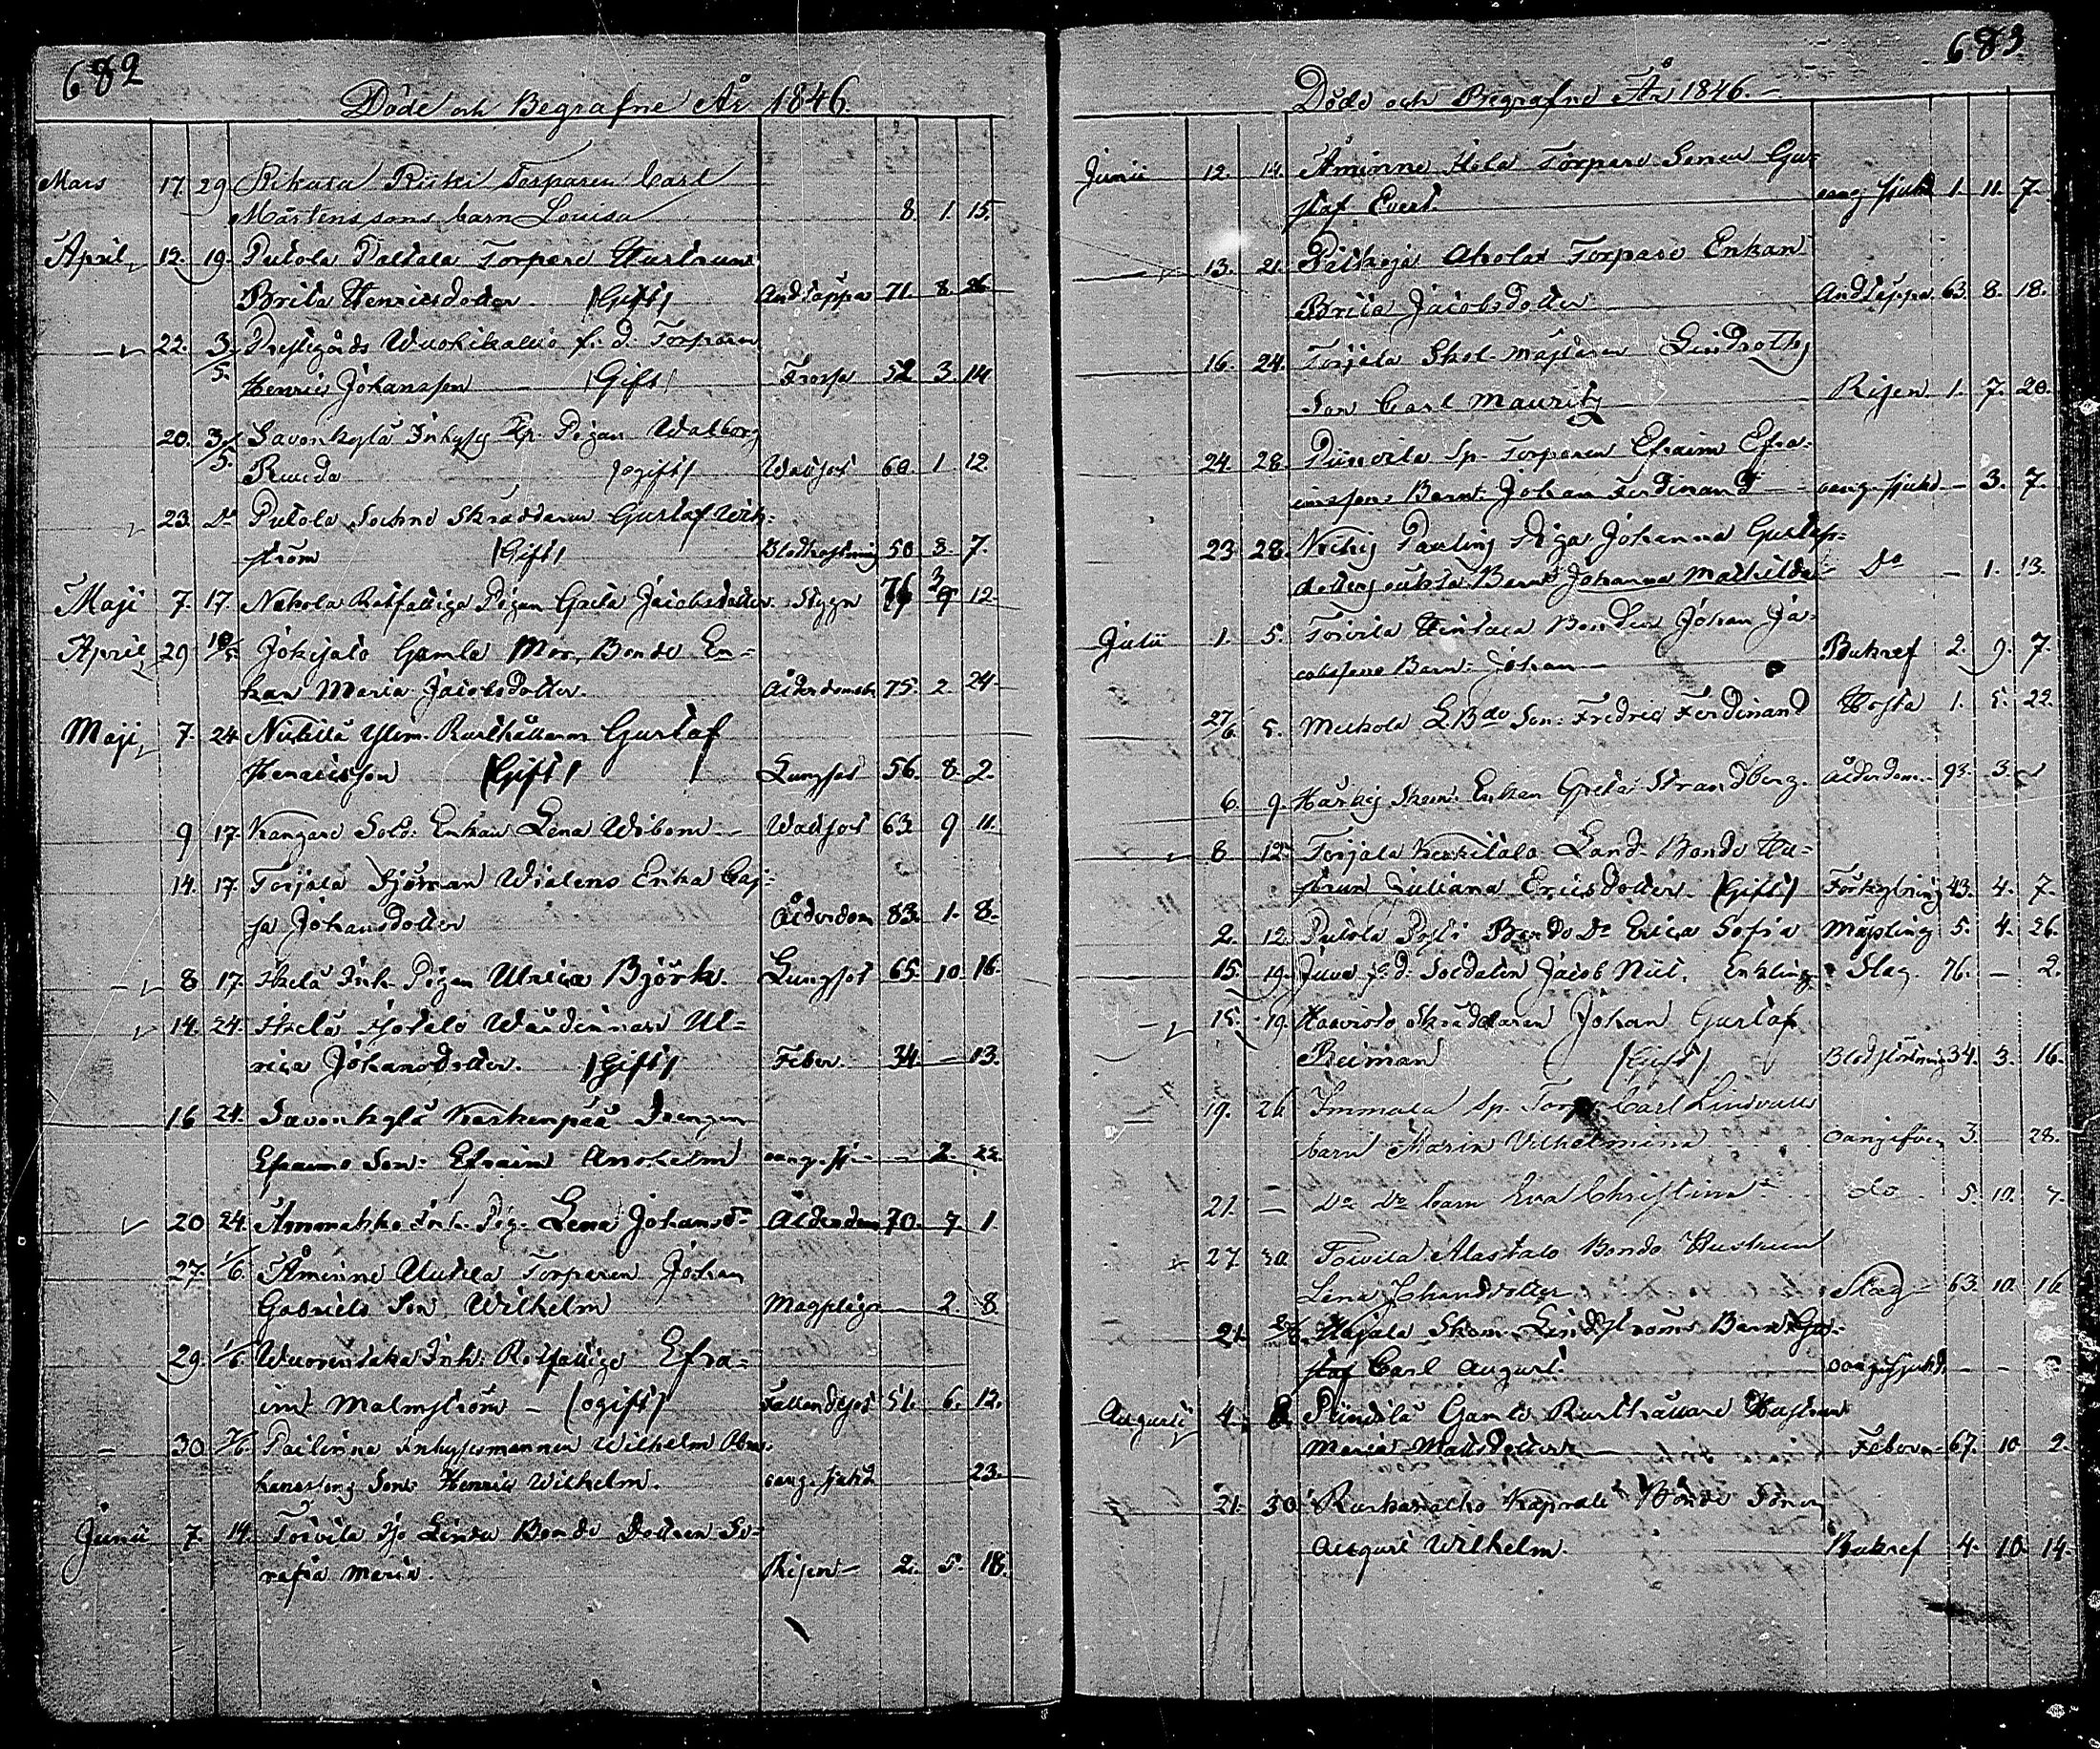 682
Döde och Begrafne År 1846.
Mars 17. 29 Rikala Torparen Carl
Mårtenssons barn Lovisa 8. 1. 15.
April 12. 19. Pulola Torpare Hustrun
Brita Henricsdotter (Gift) Andtäppa 71. 8. 26
22. 3/5. Prestgårds Wuohikallio f. d. Torparen
Henric Johansson (Gift) Frossa 52 3. 14
20. 3/5. Savonkylä Inhyses Pigan Walborg
Runda (ogift) Wattsot 60. 1 12.
23. Do Pulola Sockne Skräddaren Gustaf Wik-
ström (Gift) Blodhostning 50 8. 7.
Maji 7. 17. Nokola Rotfattiga Pigan Greta Jacobsdotter Stygn 76 3 12.
April 29 10/5 Jokisalo Gamla Mor, Bonde En-
kan Maria Jacobsdotter. Ålderdomsb. 75. 2. 24
Maji 7. 24 Rusthållaren Gustaf
Henricsson (Gift) Lungsot 56. 8. 2.
9 17. Kangare Sold. Enkan Lena Wibom Wattsot 63 9 11.
14. 17. Toijala Sjöman Enka Caj-
sa Johansdotter Ålderdom 83. 1. 8.
8 17. Ikelä Inh. Pigan Ulrica Björk. Lungsot 65. 10. 16.
14. 24. Ikelä Ul-
rica Johansdotter. (Gift) Feber. 34. — 13.
16 24. Savonkylä Kaskenpää Drengen
Efraims Son: Efraim Anshelm oang. sj. — 2. 22.
20 24. Ammakko Inh. Pig. Lena Johansd. Ålderdom 70. 7 1.
27. 1/6. Åminne Uutela Torparen Johan
Gabriels Son, Wilhelm Magplåga — 2. 8
29. 1/6. Wuorentaka Inh. Rotfattige Efra-
im Malmström — (ogift) Fallandesot 51. 6. 12.
30 Pailinna Inhysesmannen Wilhelm Abra-
hamssons Son: Henric Wilhelm. oang. sjukd. 23.
Junii 7. 14. Toivila Linda Bonde Dottren Se-
rafia Maria. Risen 2. 5. 18.
683
Döde och Begrafne År 1846.
Junii 12. 14. Åminne Torpare Sonen Gu-
staf Evert. oang. sjukd. 1. 11. 7.
13. 21. Ahola Torpare Enkan
Brita Jacobsdotter Andtäppa. 63. 8. 18.
16. 24. Toijala Skol-mästaren Lindroths
Son Carl Mauritz Risen. 1. 7. 20.
24. 28 Sp. Torparen Efraim Efra-
imssons Barn: Johan Ferdinand oang. sjukd — 3. 7.
23 28. Piga Johanna Gustafs-
dotters oäkta Barn Johanna Mathilda Do — 1. 13.
Julii 1. 5. Toivila Bonden Johan Ja-
cobssons Barn: Johan Bukref 2. 9. 7.
27/6. 5. L.Bde Son: Fredric Ferdinand Hosta 1. 5. 22.
6. 9. Enkan Greta Strandberg. Ålderdom. 93. 3.
8 12. Toijala Land-Bonde Hu-
strun Juliana Ericsdotter. (Gift) Förkylning 43. 4. 7.
2. 12. Pulola Bonde Do Erica Sofia Mässling 5. 4. 26.
15. 19. f. d. Soldaten Jacob Enkling Slag. 76. — 2.
15. 19. Haavisto Skräddaren Johan Gustaf
Reiman (Gift) Blodstörtning 34. 3. 16.
19. 26 Immala Sp. Torp. Carl Lindvalls
barn Maria Vilhelmina oangifven 3. — 28.
21. — Do Do barn Eva Christina do 5. 10. 7.
27. 30. Toivila Alastalo Bonde Hustrun
Lena Johansdotter Slag 63. 10. 16.
21. Lindströms Barn Gu-
staf Carl August. oang. sjukd. — —
Augusti 4. 8. Gamle Rusthållare Hustrun
Maria Mattsdotter Febern 67. 10 2.
21. 30. Bonde Sonen
August Wilhelm. Bukref 4. 10. 14.